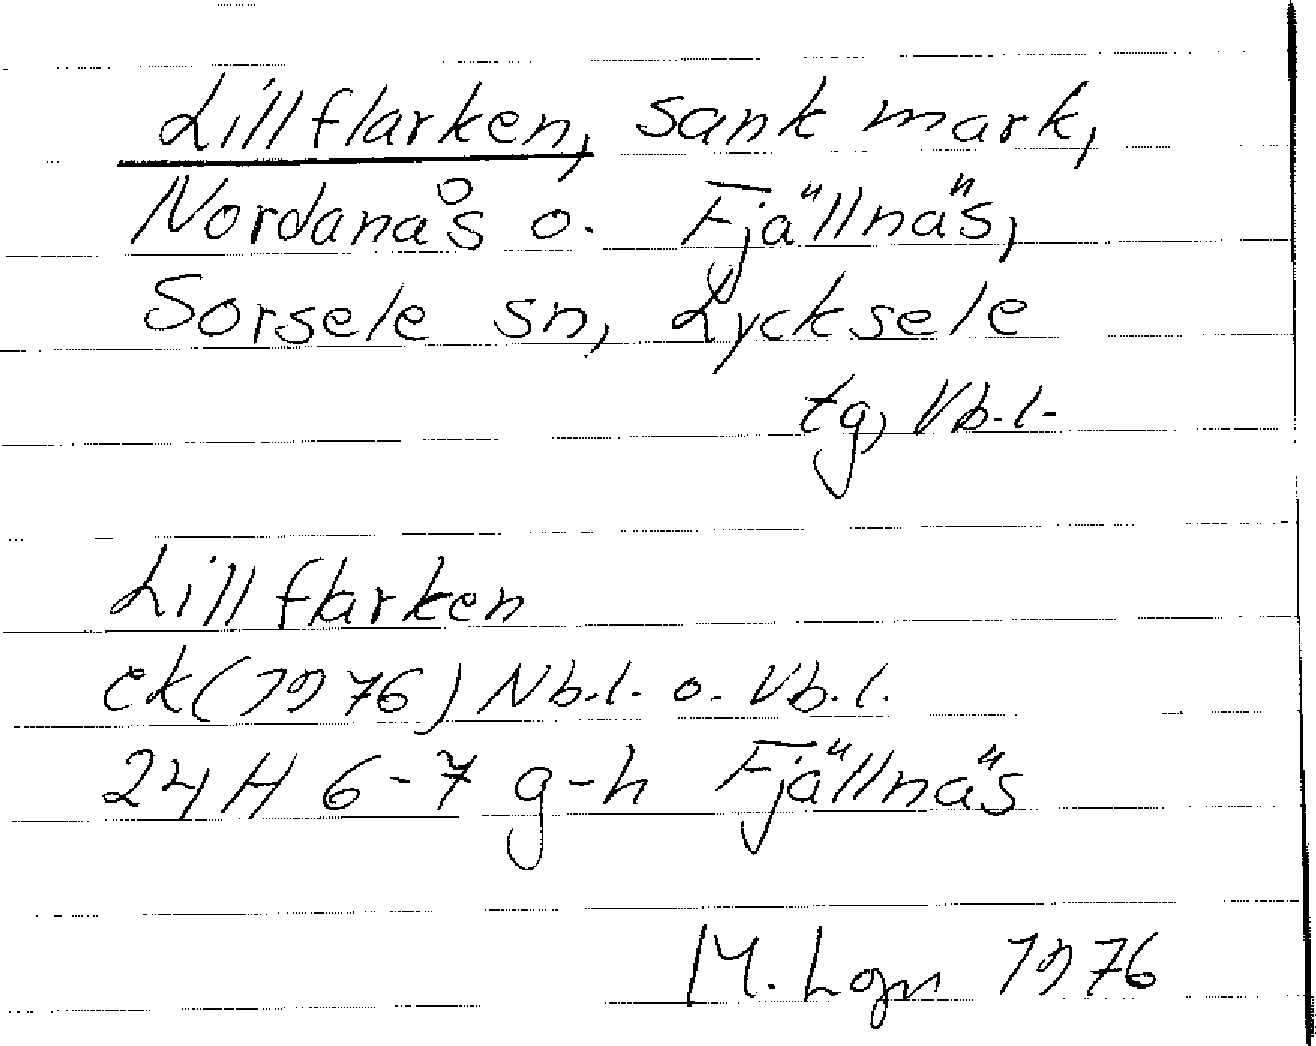 Lillflarken, sank mark,
Nordanås o. Fjällnäs,
Sorsele sn, Lycksele
tg, Vb.l.
Lillflarken
ek (1976) Nb.l. o. Vb.l.
24H 6-7 g-h Fjällnäs
M. Lgn 1976